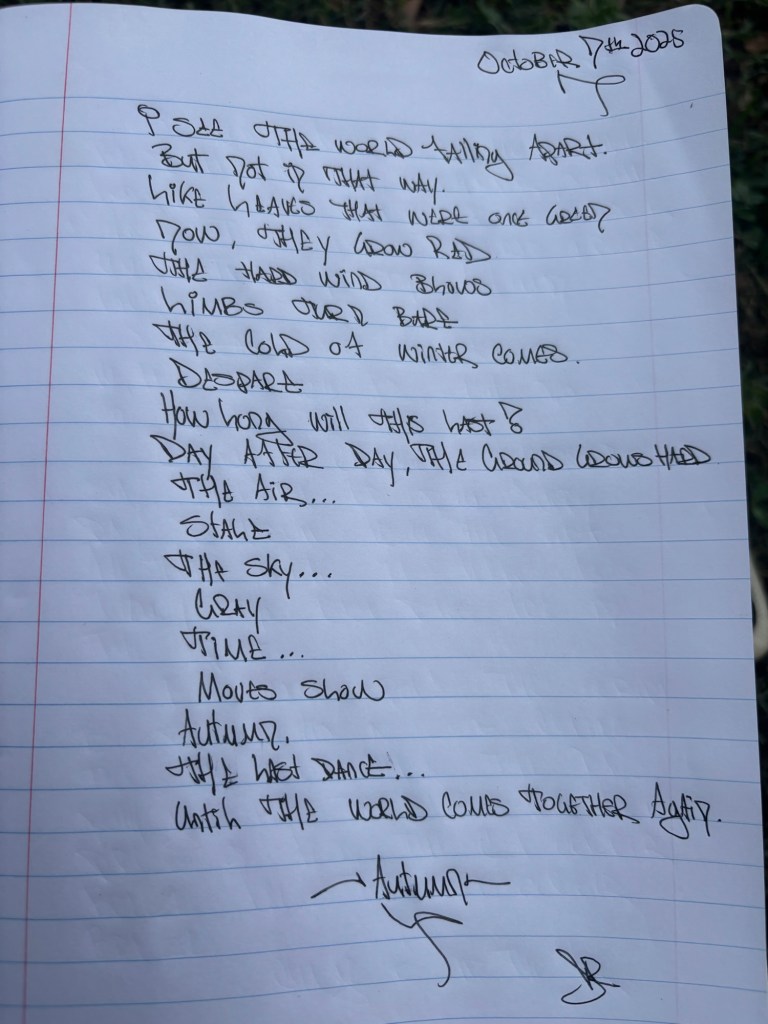 OCTOBER 7TH 2025
I SEE THE WORLD falling APART.
But not in THAT WAY.
LIKE LEAVES THAT WERE ONCE GREEN
NOW, THEY GROW RED
THE HARD WIND BLOWS
LIMBS TURN BARE
THE COLD of WINTER COMES.
DESPARE
How Long will THIS LAST?
DAY AFTER DAY, THE GROUND GROWS HARD
THE AIR...
STALE
THE SKY...
GRAY
TIME...
MOVES SLOW
AUTUMN.
THE LAST DANCE...
Until THE WORLD COMES TOGETHER Again.
-Autumn-
JR